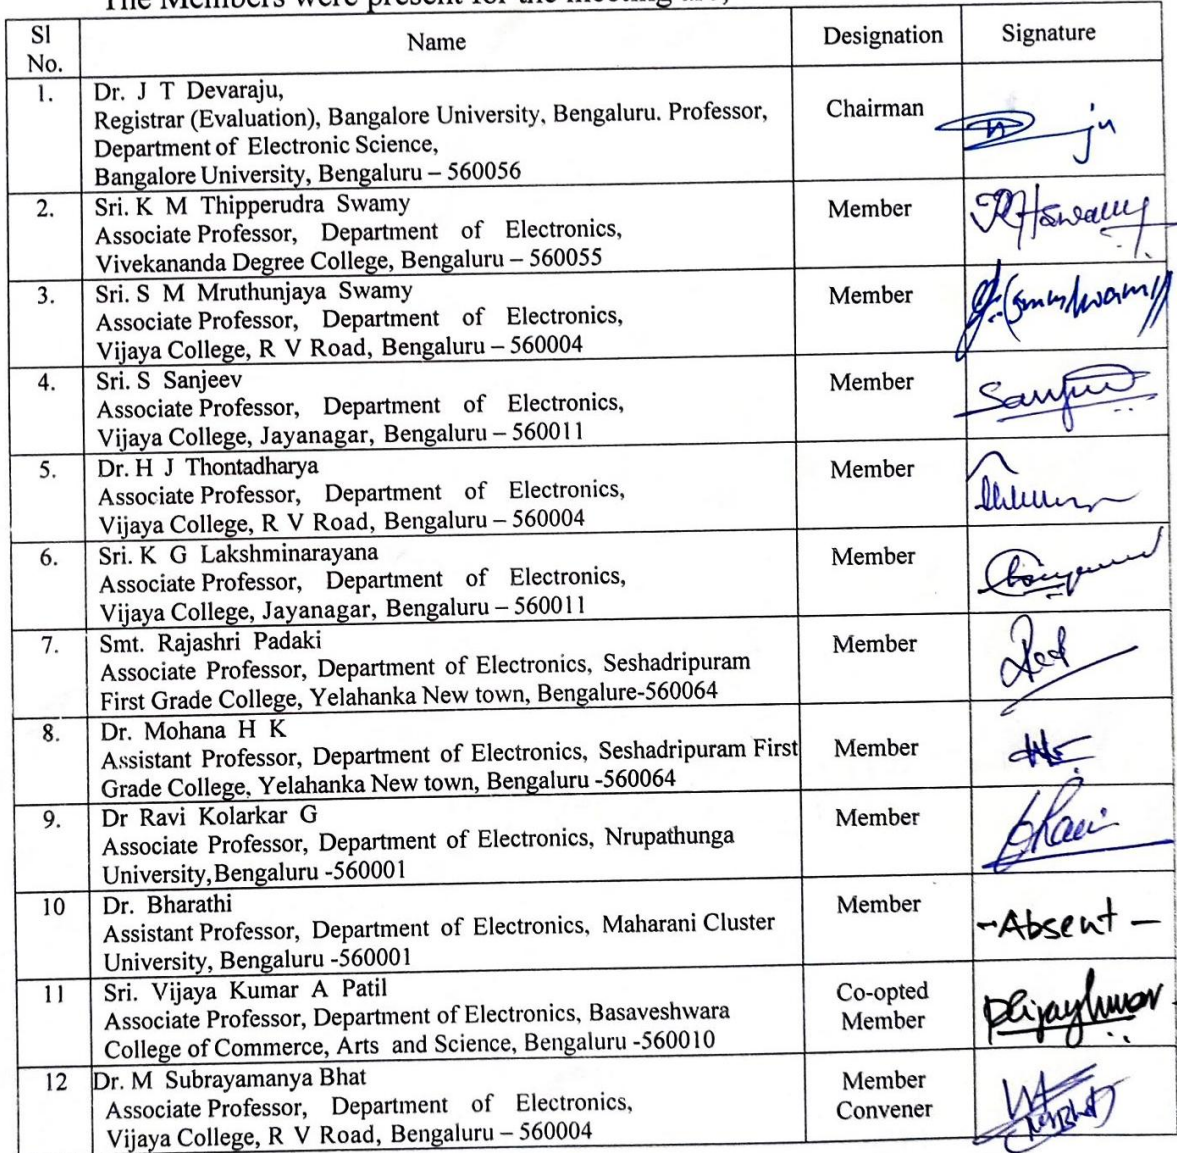 The Members were present for the meeting are,
Sl No.
Name
Designation
Signature
1.
Dr. J T Devaraju,
Registrar (Evaluation), Bangalore University, Bengaluru. Professor,
Department of Electronic Science,
Bangalore University, Bengaluru – 560056
Chairman
2.
Sri. K M Thipperudra Swamy
Associate Professor, Department of Electronics,
Vivekananda Degree College, Bengaluru – 560055
Member
3.
Sri. S M Mruthunjaya Swamy
Associate Professor, Department of Electronics,
Vijaya College, R V Road, Bengaluru – 560004
Member
4.
Sri. S Sanjeev
Associate Professor, Department of Electronics,
Vijaya College, Jayanagar, Bengaluru – 560011
Member
5.
Dr. H J Thontadharya
Associate Professor, Department of Electronics,
Vijaya College, R V Road, Bengaluru – 560004
Member
6.
Sri. K G Lakshminarayana
Associate Professor, Department of Electronics,
Vijaya College, Jayanagar, Bengaluru – 560011
Member
7.
Smt. Rajashri Padaki
Associate Professor, Department of Electronics, Seshadripuram
First Grade College, Yelahanka New town, Bengalure-560064
Member
8.
Dr. Mohana H K
Assistant Professor, Department of Electronics, Seshadripuram First
Grade College, Yelahanka New town, Bengaluru -560064
Member
9.
Dr Ravi Kolarkar G
Associate Professor, Department of Electronics, Nrupathunga
University,Bengaluru -560001
Member
10
Dr. Bharathi
Assistant Professor, Department of Electronics, Maharani Cluster
University, Bengaluru -560001
Member
-Absent-
11
Sri. Vijaya Kumar A Patil
Associate Professor, Department of Electronics, Basaveshwara
College of Commerce, Arts and Science, Bengaluru -560010
Co-opted
Member
12
Dr. M Subrayamanya Bhat
Associate Professor, Department of Electronics,
Vijaya College, R V Road, Bengaluru – 560004
Member
Convener